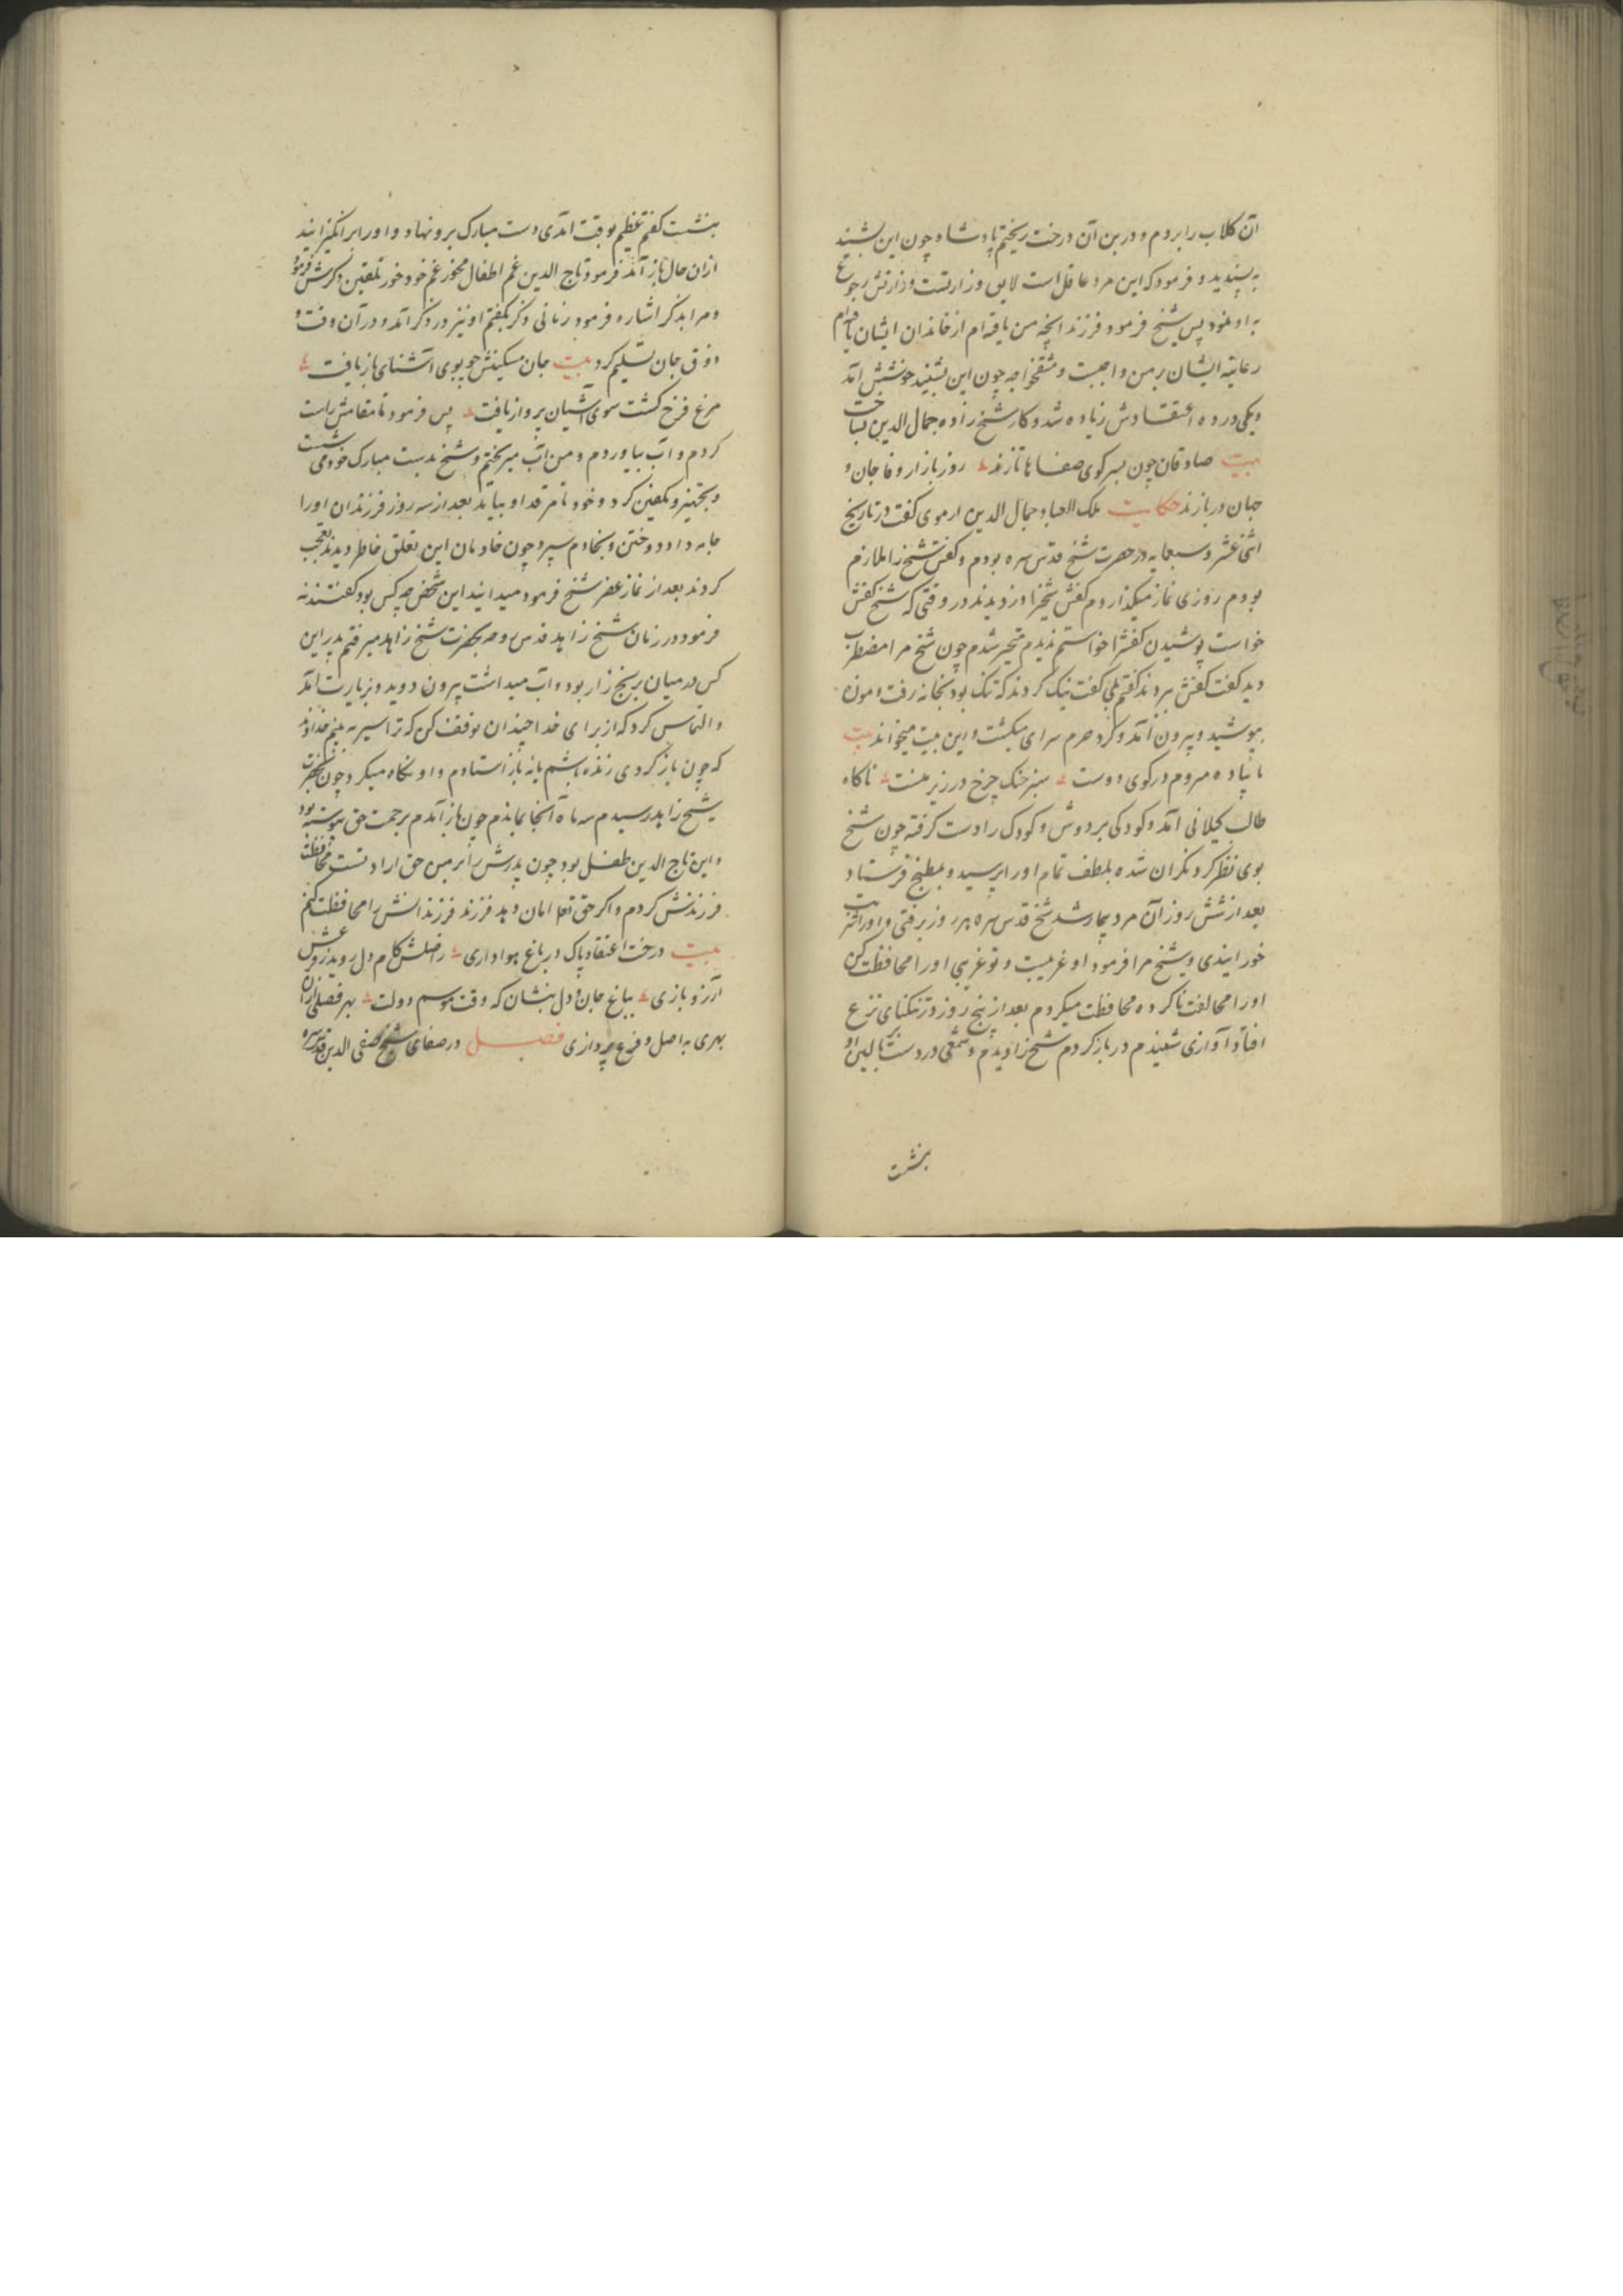 آن کلاب را بردم و در بن آن درخت ریختم پادشاه چون این بشنید
به پسندید و فرمود که این مرد عاقل است لایق وزارتست وزارتش رجوع
به او نمود پس شیخ فرمود فرزند انچه من یافته‌ام از خاندان ایشان یافته‌ام
رعایت ایشان بر من واجبست و شفقت خواجه چون این بشنید خوشش آمد
و یکی در ده اعتقادش زیاده شد و کار شیخ زاده جمال الدین بساخت
بیت صادقان چون بسر کوی صفاها تازند روز بازار وفا جان و
جهان در بازند حکایت ملک العباد جمال الدین ارموی کفت در تاریخ
اثنی عشر و سبعمایه در حضرت شیخ قدس سره بودم و کفش شیخ را ملازم
بودم روزی نماز میکذاردم کفش شیخ را دزدیدند در وقتی که شیخ کفش
خواست پوشیدن کفش را خواستم ندیدم متحیر شدم چون شیخ مرا مضطرب
دید کفت کفش بردند کفتم بلی کفت نیک کردند که تنک بود بخانه رفت و موزه
بپوشید و بیرون آمد و کرد حرم سرای میکشت و این بیت میخواند بیت
تا پیاده میروم در کوی دوست سبز خنک چرخ در زیر منست ناکاه
طالب کیلانی آمد و کودکی بر دوش و کودک را دست کرفته چون شیخ
بوی نظر کرد نکران شده بلطف تمام او را پرسید و بمطبخ فرستاد
بعد از شش روز آن مرد بیمار شد شیخ قدس سره هر روز برفتی و او را شربت
خورانیدی و شیخ مرا فرمود او غریبست و تو غریبی او را محافظت کن
او را مخالفت ناکرده محافظت میکردم بعد از پنج روز در تنکنای نزع
افتاد آوازی شنیدم در باز کردم شیخ را دیدم و شمعی در دست بر بالین او
بنشست
بنشست کفتم عظیم بوقت آمدی دست مبارک برو نهاد و او را برانکیزانید
از ان حال باز آمد فرمود تاج الدین غم اطفال مخور غم خود خور تلقین ذکرش فرمود
و مرا بذکر اشاره فرمود زمانی ذکر بکفتم او نیز در ذکر آمد و در آن وقت و
ذوق جان تسلیم کرد بیت جان مسکینش چو بوی آشنای باز یافت
مرغ فرخ کشت سوی آشیان پرواز یافت پس فرمود تا مقامش راست
کردم و آب بیاوردم و من آب میریختم و شیخ بدست مبارک خود می شست
و بتجهیز و تکفین کرد و خود تا مرقد او بیامد بعد از سه روز فرزندان او را
جامه داد دوختن و بخادم سپرد چون خادمان این تعلق خاطر دیدند تعجب
کردند بعد از نماز عصر شیخ فرمود میدانید این شخص چه کس بود کفتند نه
فرمود در زمان شیخ زاهد قدس روحه بحضرت شیخ زاهد میرفتم پدر این
کس در میان برنج زار بود و آب میداشت بیرون دوید و بزیارت آمد
و التماس کرد که از برای خدا چندان توقف کن که ترا سیر به بینم خدا داند
که چون باز کردی زنده باشم یا نه باز استادم و او نکاه میکرد چون بحضرت
شیخ زاهد رسیدم سه ماه آنجا بماندم چون باز آمدم برحمت حق پیوسته بود
و این تاج الدین طفل بود چون پدرش را بر من حق ارادتست محافظت
فرزندش کردم و اکر حق تعا امان دهد فرزند فرزندانش را محافظت کنم
بیت درخت اعتقاد پاک در باغ هواداری ز اصلش کام دل روید ز فرعش
آرزو بازی بباغ جان و دل بنشان که وقت موسم دولت بهر فصلی ازان
بهری به اصل و فرع پردازی فصل در صفای شیخ صفی الدین قدس سره